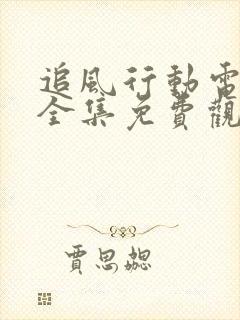 追風行動電
全集免費觀
賈思勰